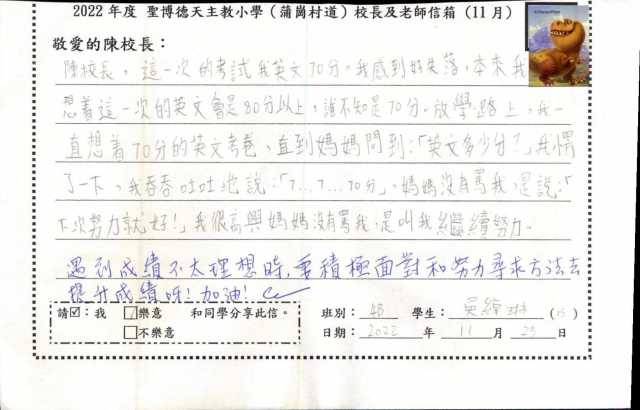 2022 年度 聖博德天主教小學（蒲崗村道）校長及老師信箱（11 月）
敬愛的陳校長：
陳校長，這一次的考試我英文70分，我感到好失落，本來我
想着這一次的英文會是80分以上，誰不知是70分。放學路上，我一
直想着70分的英文考卷，直到媽媽問到：「英文多少分？」我愣
了一下，我吞吞吐吐地說：「7…7…70分」，媽媽沒有罵我，是說：「
下次努力就好！」我很高興媽媽沒有罵我，是叫我繼續努力。
遇到成績不太理想時，要積極面對和努力尋求方法去
提升成績呀！加油！
請☑：我 ☑樂意 和同學分享此信。 班別： 4B 學生： 吳
□不樂意 日期： 2022 年 11 月 25 日